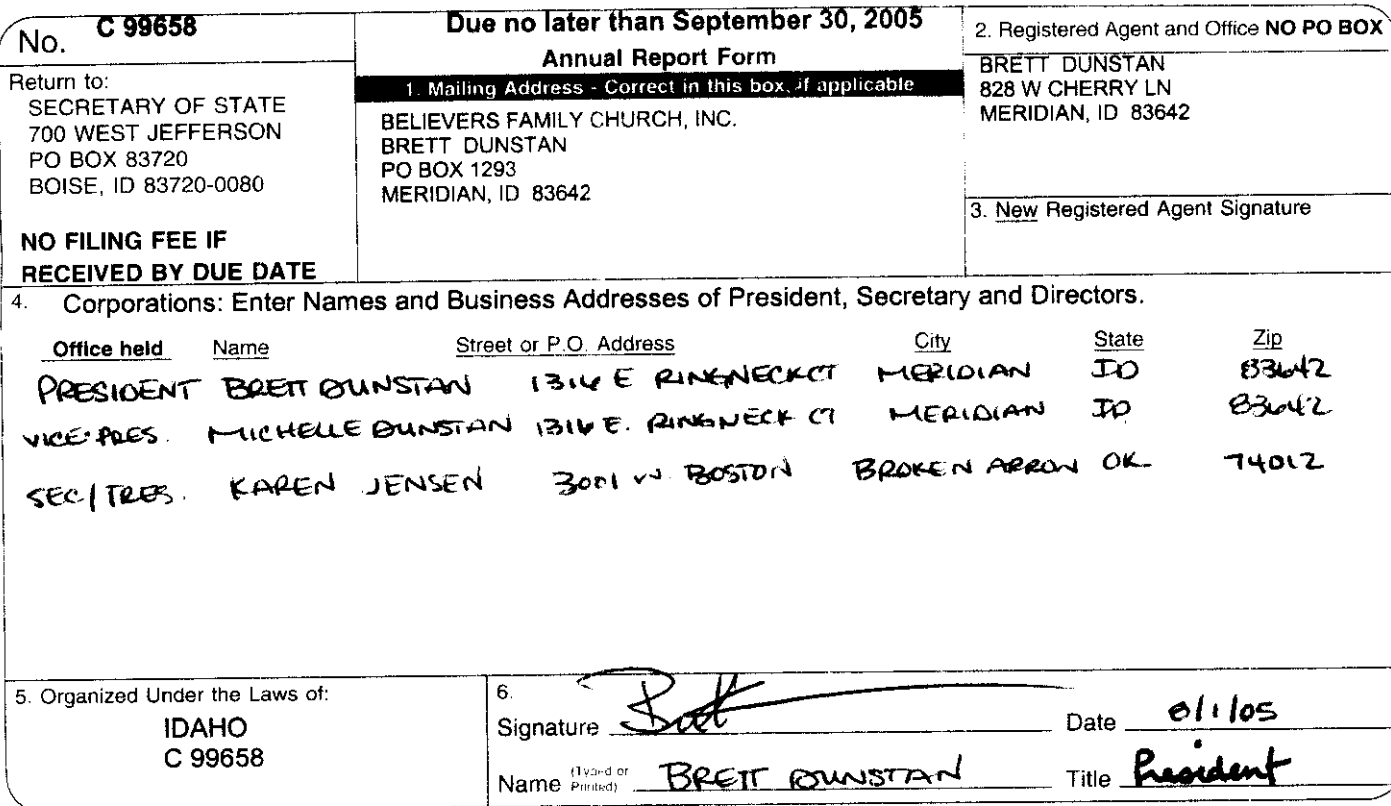 No. C 99658
Return to:
SECRETARY OF STATE
700 WEST JEFFERSON
PO BOX 83720
BOISE, ID 83720-0080
NO FILING FEE IF
RECEIVED BY DUE DATE
Due no later than September 30, 2005
Annual Report Form
1. Mailing Address - Correct in this box, if applicable
BELIEVERS FAMILY CHURCH, INC.
BRETT DUNSTAN
PO BOX 1293
MERIDIAN, ID 83642
2. Registered Agent and Office NO PO BOX
BRETT DUNSTAN
828 W CHERRY LN
MERIDIAN, ID 83642
3. New Registered Agent Signature
4. Corporations: Enter Names and Business Addresses of President, Secretary and Directors.
Office held Name Street or P.O. Address City State Zip
PRESIDENT BRETT DUNSTAN 1316 E RINGNECK CT MERIDIAN ID 83642
VICE-PRES. MICHELLE DUNSTAN 1316 E. RINGNECK CT MERIDIAN ID 83642
SEC/TRES. KAREN JENSEN 3001 W BOSTON BROKEN ARROW OK 74012
5. Organized Under the Laws of:
IDAHO
C 99658
6.
Signature Date 8/1/05
Name (Typed or Printed) BRETT DUNSTAN Title President